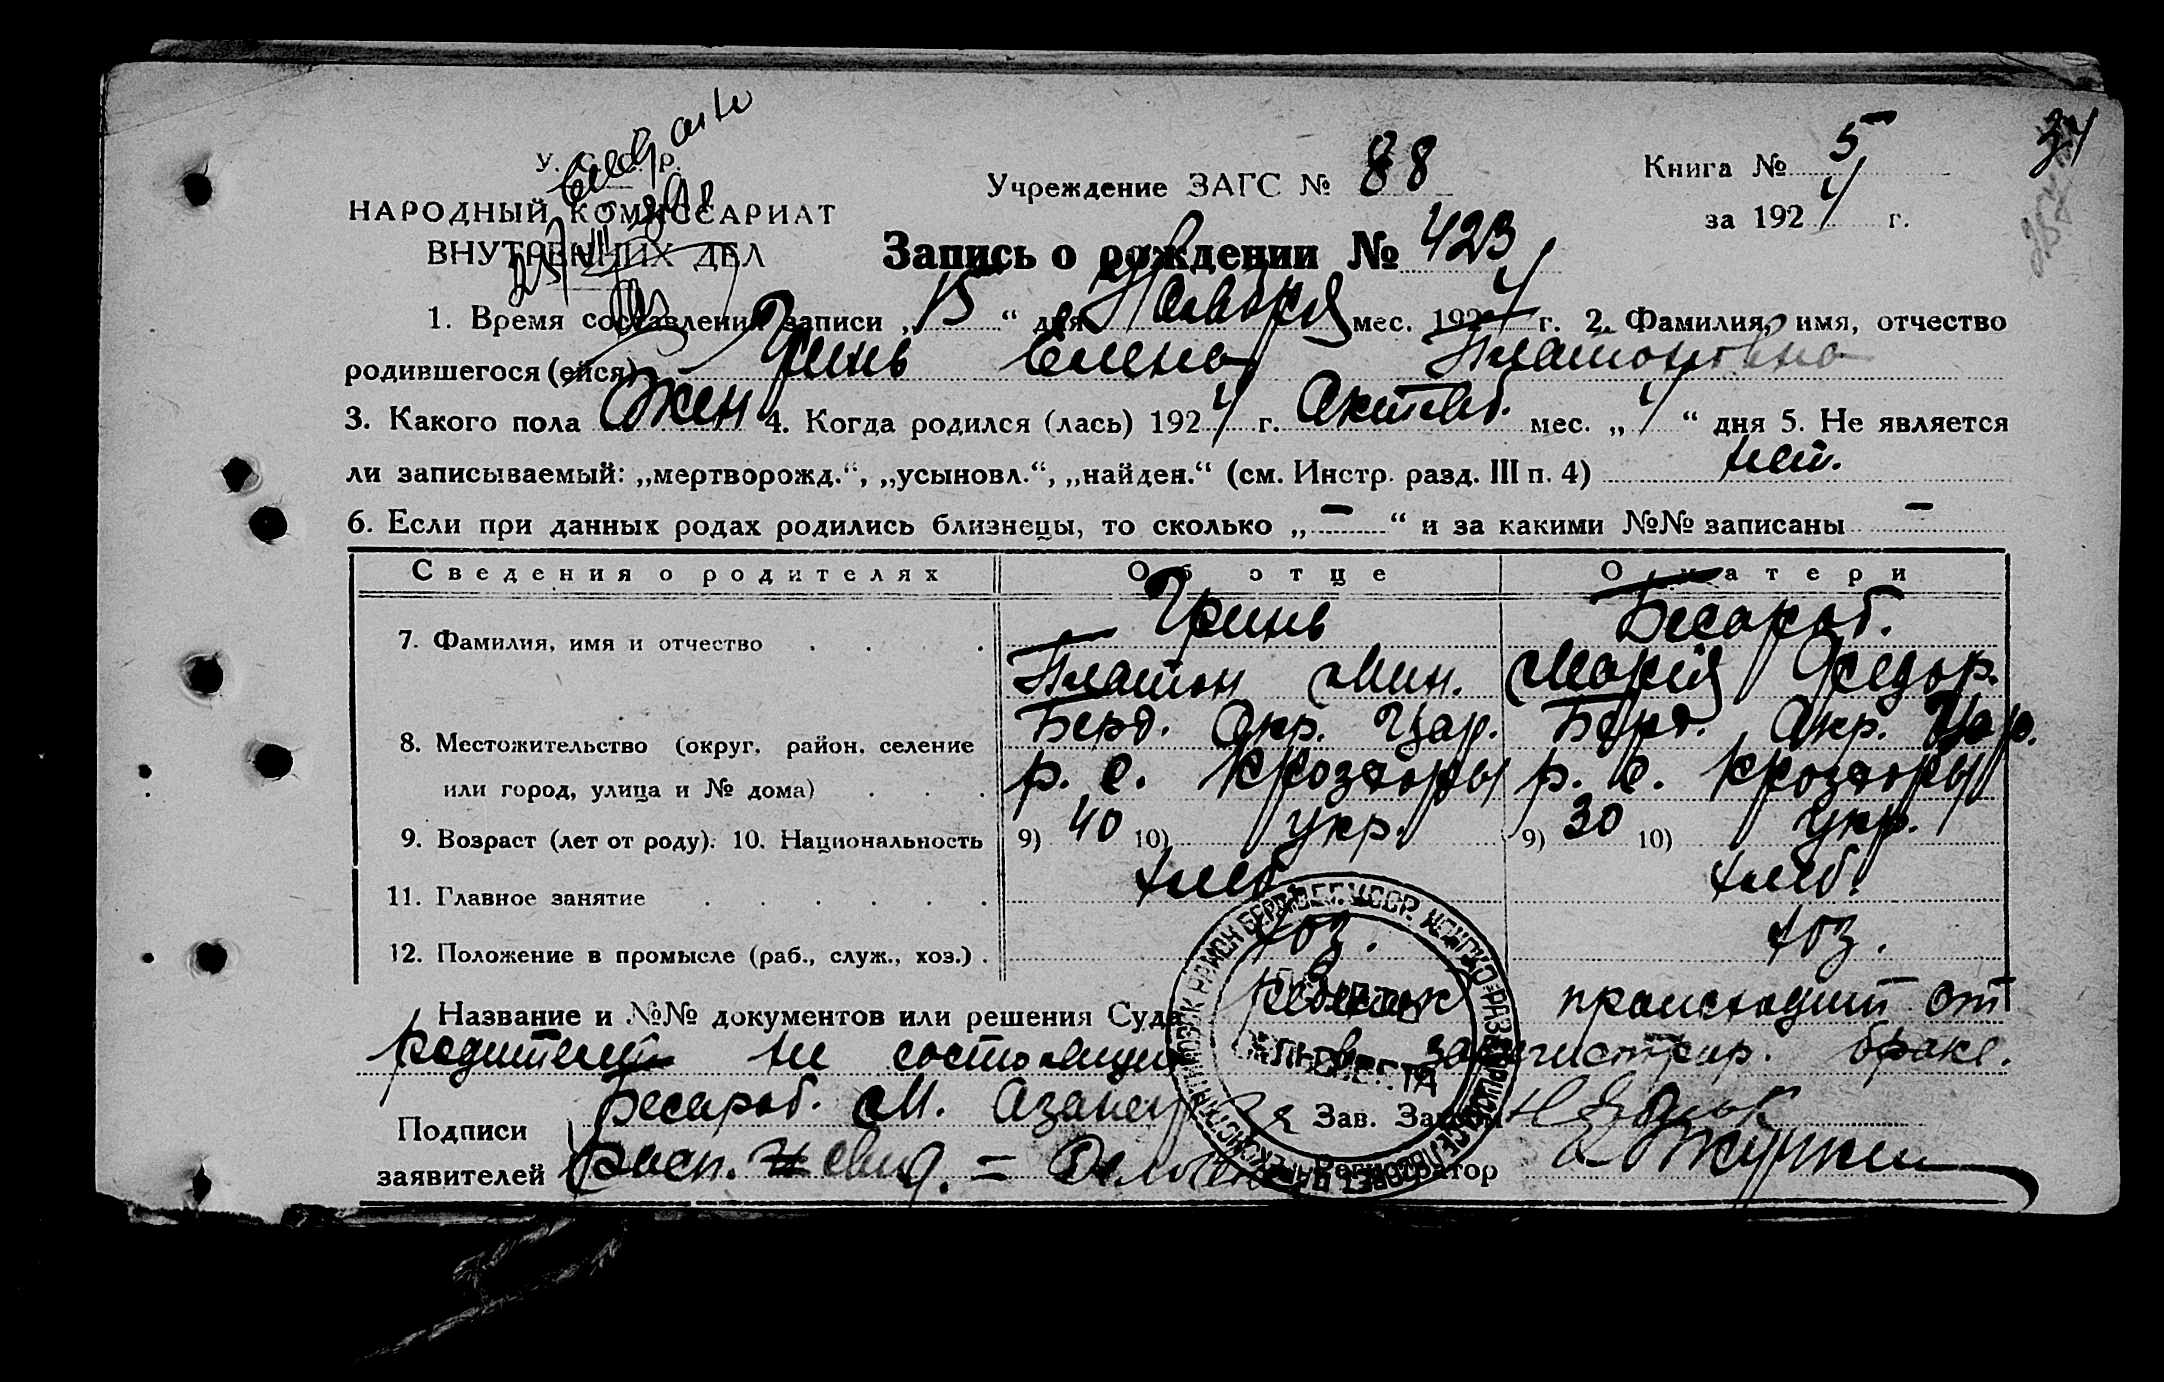 У. С. С. Р.
НАРОДНЫЙ КОМИССАРИАТ
ВНУТРЕННИХ ДЕЛ
Учреждение ЗАГС № 88
Книга № 5
за 1924 г.
34
Запись о рождении № 423
1. Время составления записи „15“ дня Ноября мес. 1924 г. 2. Фамилия, имя, отчество
родившегося (ейся) Гринь Елена Платоновна
3. Какого пола Жен 4. Когда родился (лась) 1924 г. Октяб. мес. „4“ дня 5. Не является
ли записываемый: „мертворожд.“, „усыновл.“, „найден.“ (см. Инстр. разд. III п. 4) нет.
6. Если при данных родах родились близнецы, то сколько „—“ и за какими №№ записаны —
Сведения о родителях Об отце О матери
7. Фамилия, имя и отчество Гринь Бесараб.
Платон Мин. Мария Федор.
8. Местожительство (округ, район, селение Берд. Окр. Цар. Берд. Окр. Цар.
или город, улица и № дома) р. с. р. с.
9. Возраст (лет от роду). 10. Национальность 9) 40 10) Укр. 9) 30 10) Укр.
11. Главное занятие хлеб. хлеб.
12. Положение в промысле (раб., служ., хоз.) хоз. хоз.
Название и №№ документов или решения Суда происходит от
родителей не состоящих в зарегистрир. браке.
Подписи Бесараб. М. Зав. Загсом
заявителей расп. Регистратор
СЕЛЬСОВЕТА